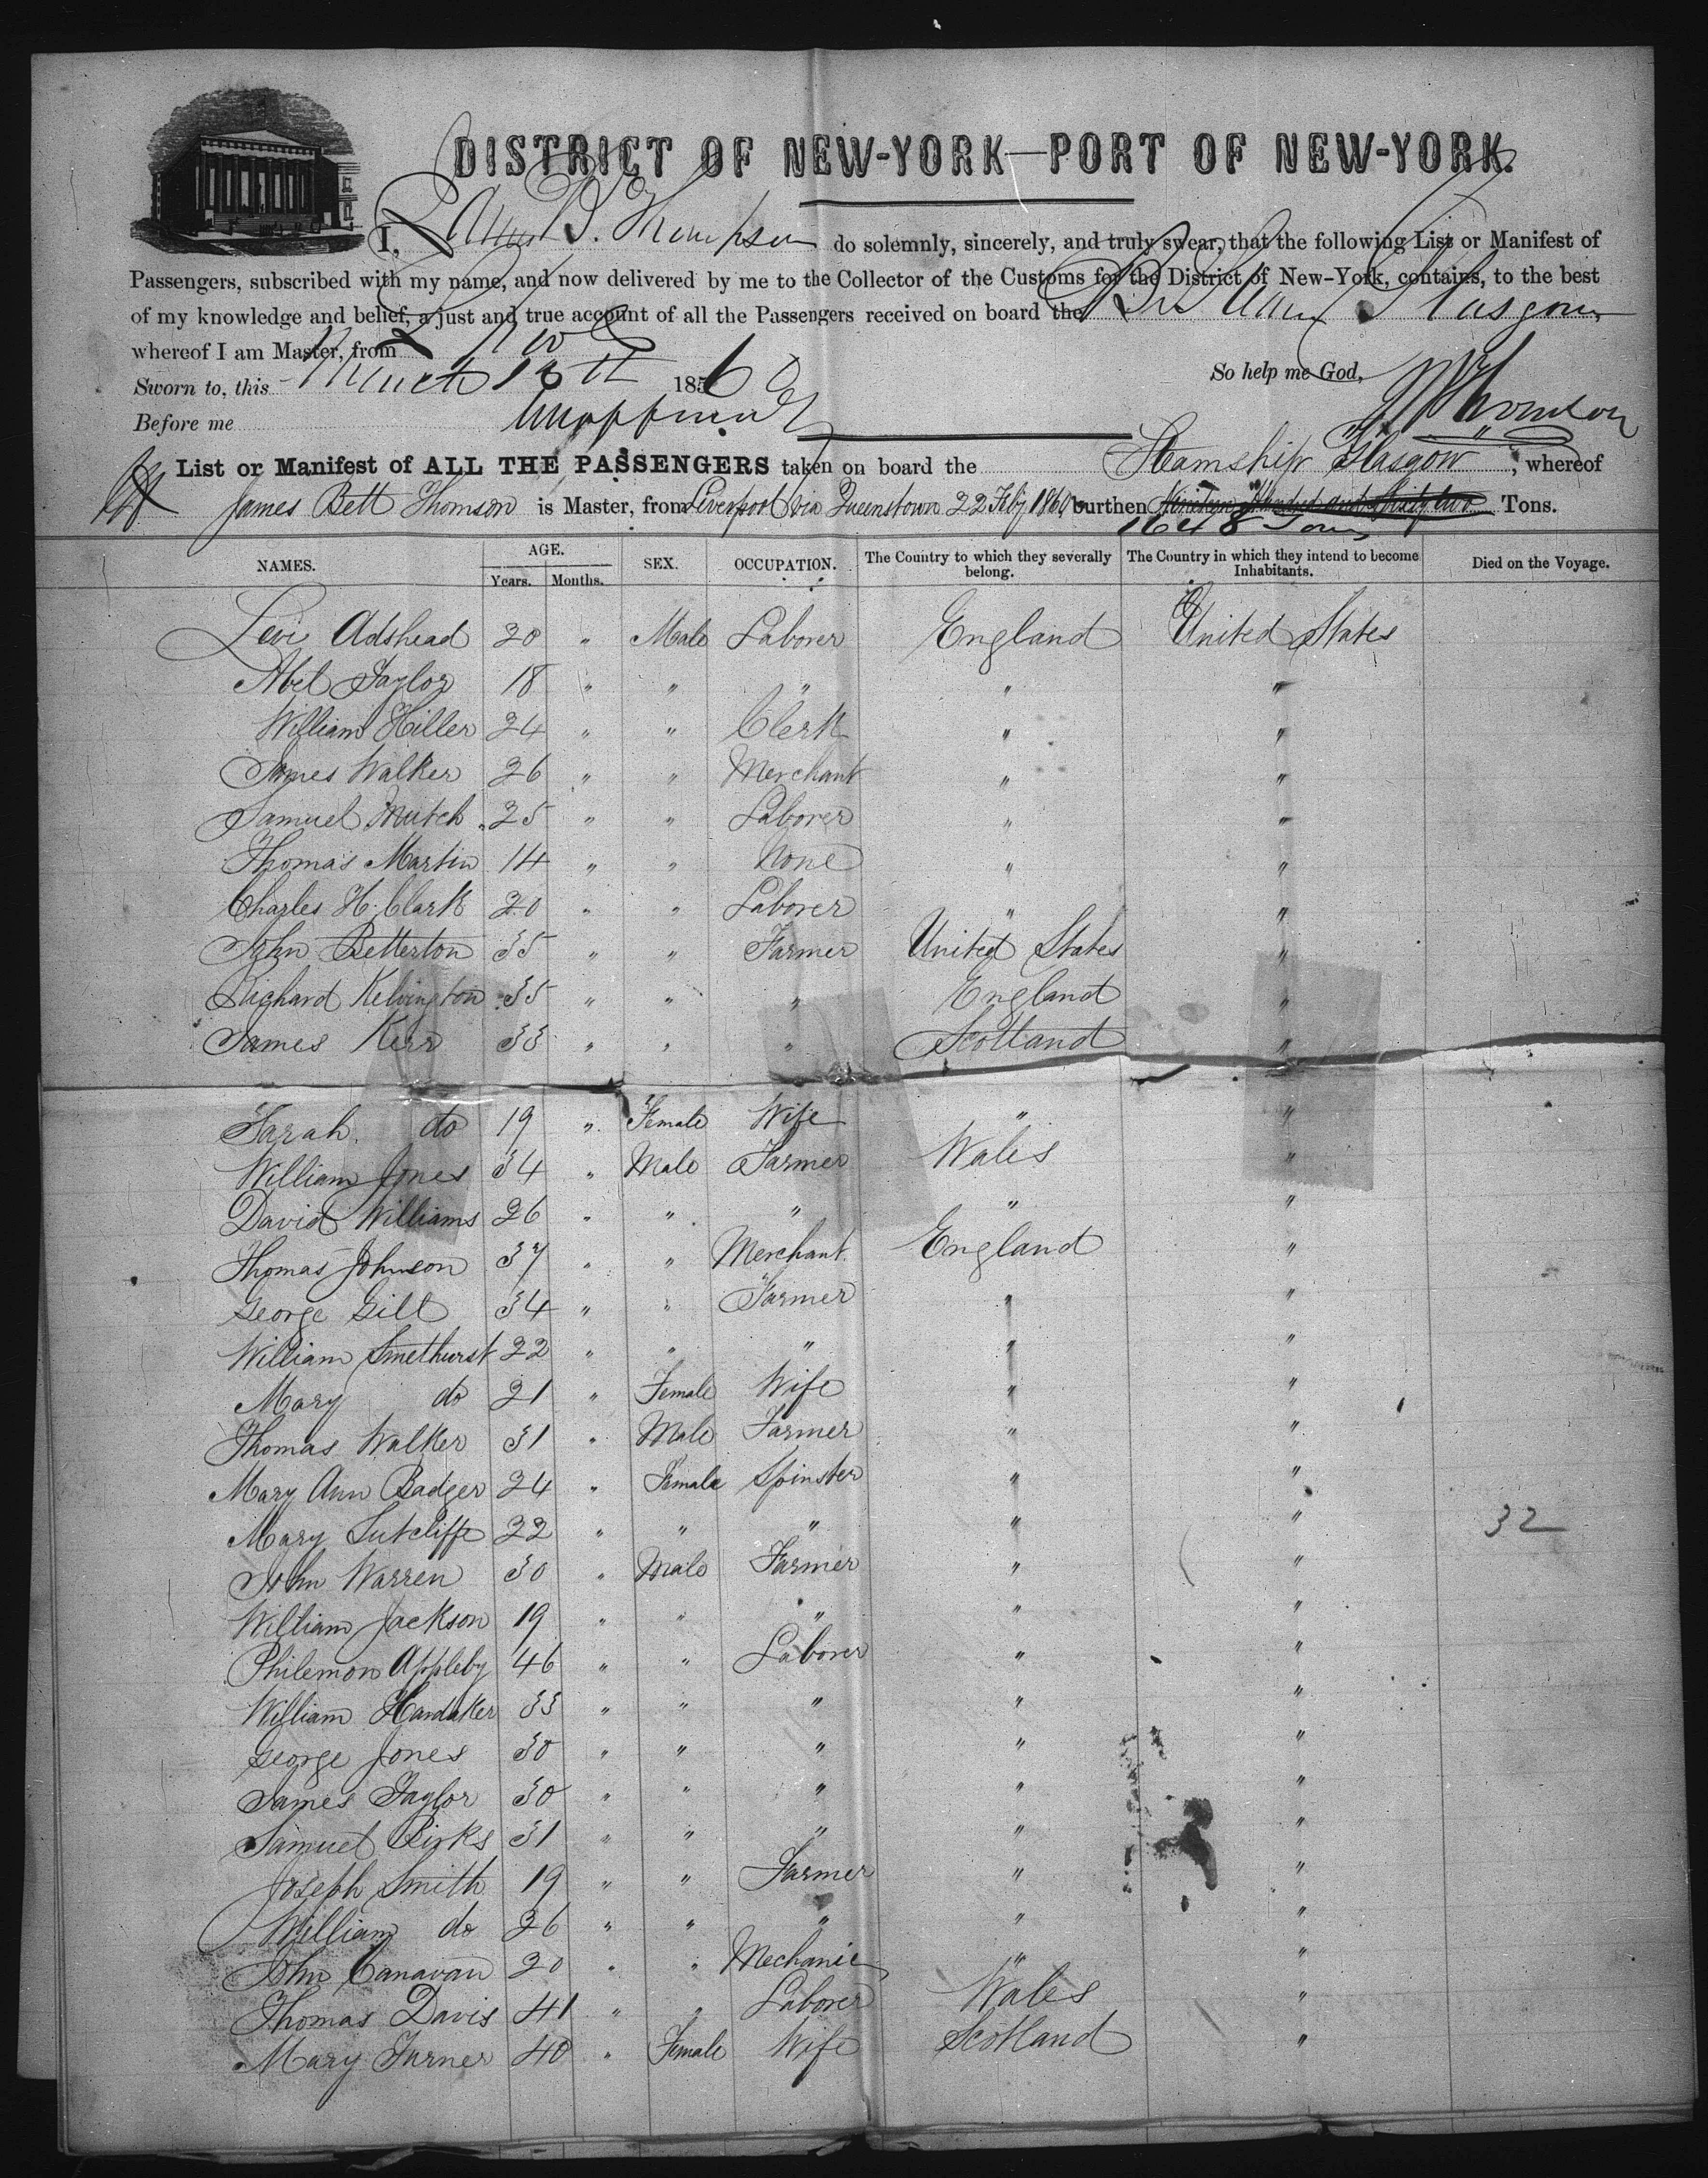 DISTRICT OF NEW-YORK—PORT OF NEW-YORK.
I, James B. Thompson do solemnly, sincerely, and truly swear, that the following List or Manifest of
Passengers, subscribed with my name, and now delivered by me to the Collector of the Customs for the District of New-York, contains, to the best
of my knowledge and belief, a just and true account of all the Passengers received on board the Glasgow
whereof I am Master, from
So help me God,
Sworn to, this March 13th 1860
Before me
List or Manifest of ALL THE PASSENGERS taken on board the Steamship Glasgow, whereof
James Bett Thomson is Master, from Liverpool via Queenstown 22 Feby 1860 burthen Tons.
1648 Tons
NAMES. AGE. SEX. OCCUPATION. The Country to which they severally belong. The Country in which they intend to become Inhabitants. Died on the Voyage.
Years. Months.
Levi Adshead 20 " Male Laborer England United States
Abel Taylor 18 " " " " "
William Hiller 24 " " Clerk " "
James Walker 26 " " Merchant " "
Samuel Mutch 25 " " Laborer " "
Thomas Martin 14 " " None " "
Charles H. Clark 20 " " Laborer " "
John Betterton 35 " " Farmer United States "
Richard Kelvington 35 " " " England "
James Kerr 33 " " " Scotland "
Sarah do 19 " Female Wife " "
William Jones 34 " Male Farmer Wales "
David Williams 26 " " " " "
Thomas Johnson 37 " " Merchant England "
George Gill 34 " " Farmer " "
William Smethurst 22 " " " " "
Mary do 21 " Female Wife " "
Thomas Walker 31 " Male Farmer " "
Mary Ann Badger 24 " Female Spinster " "
Mary Sutcliffe 22 " " " " " 32
John Warren 30 " Male Farmer " "
William Jackson 19 " " " " "
Philemon Appleby 46 " " Laborer " "
William Handaker 33 " " " " "
George Jones 30 " " " " "
James Taylor 30 " " " " "
Samuel Birks 31 " " " " "
Joseph Smith 19 " " Farmer " "
William do 26 " " " " "
John Canavan 20 " " Mechanic " "
Thomas Davis 41 " " Laborer Wales "
Mary Turner 40 " Female Wife Scotland "